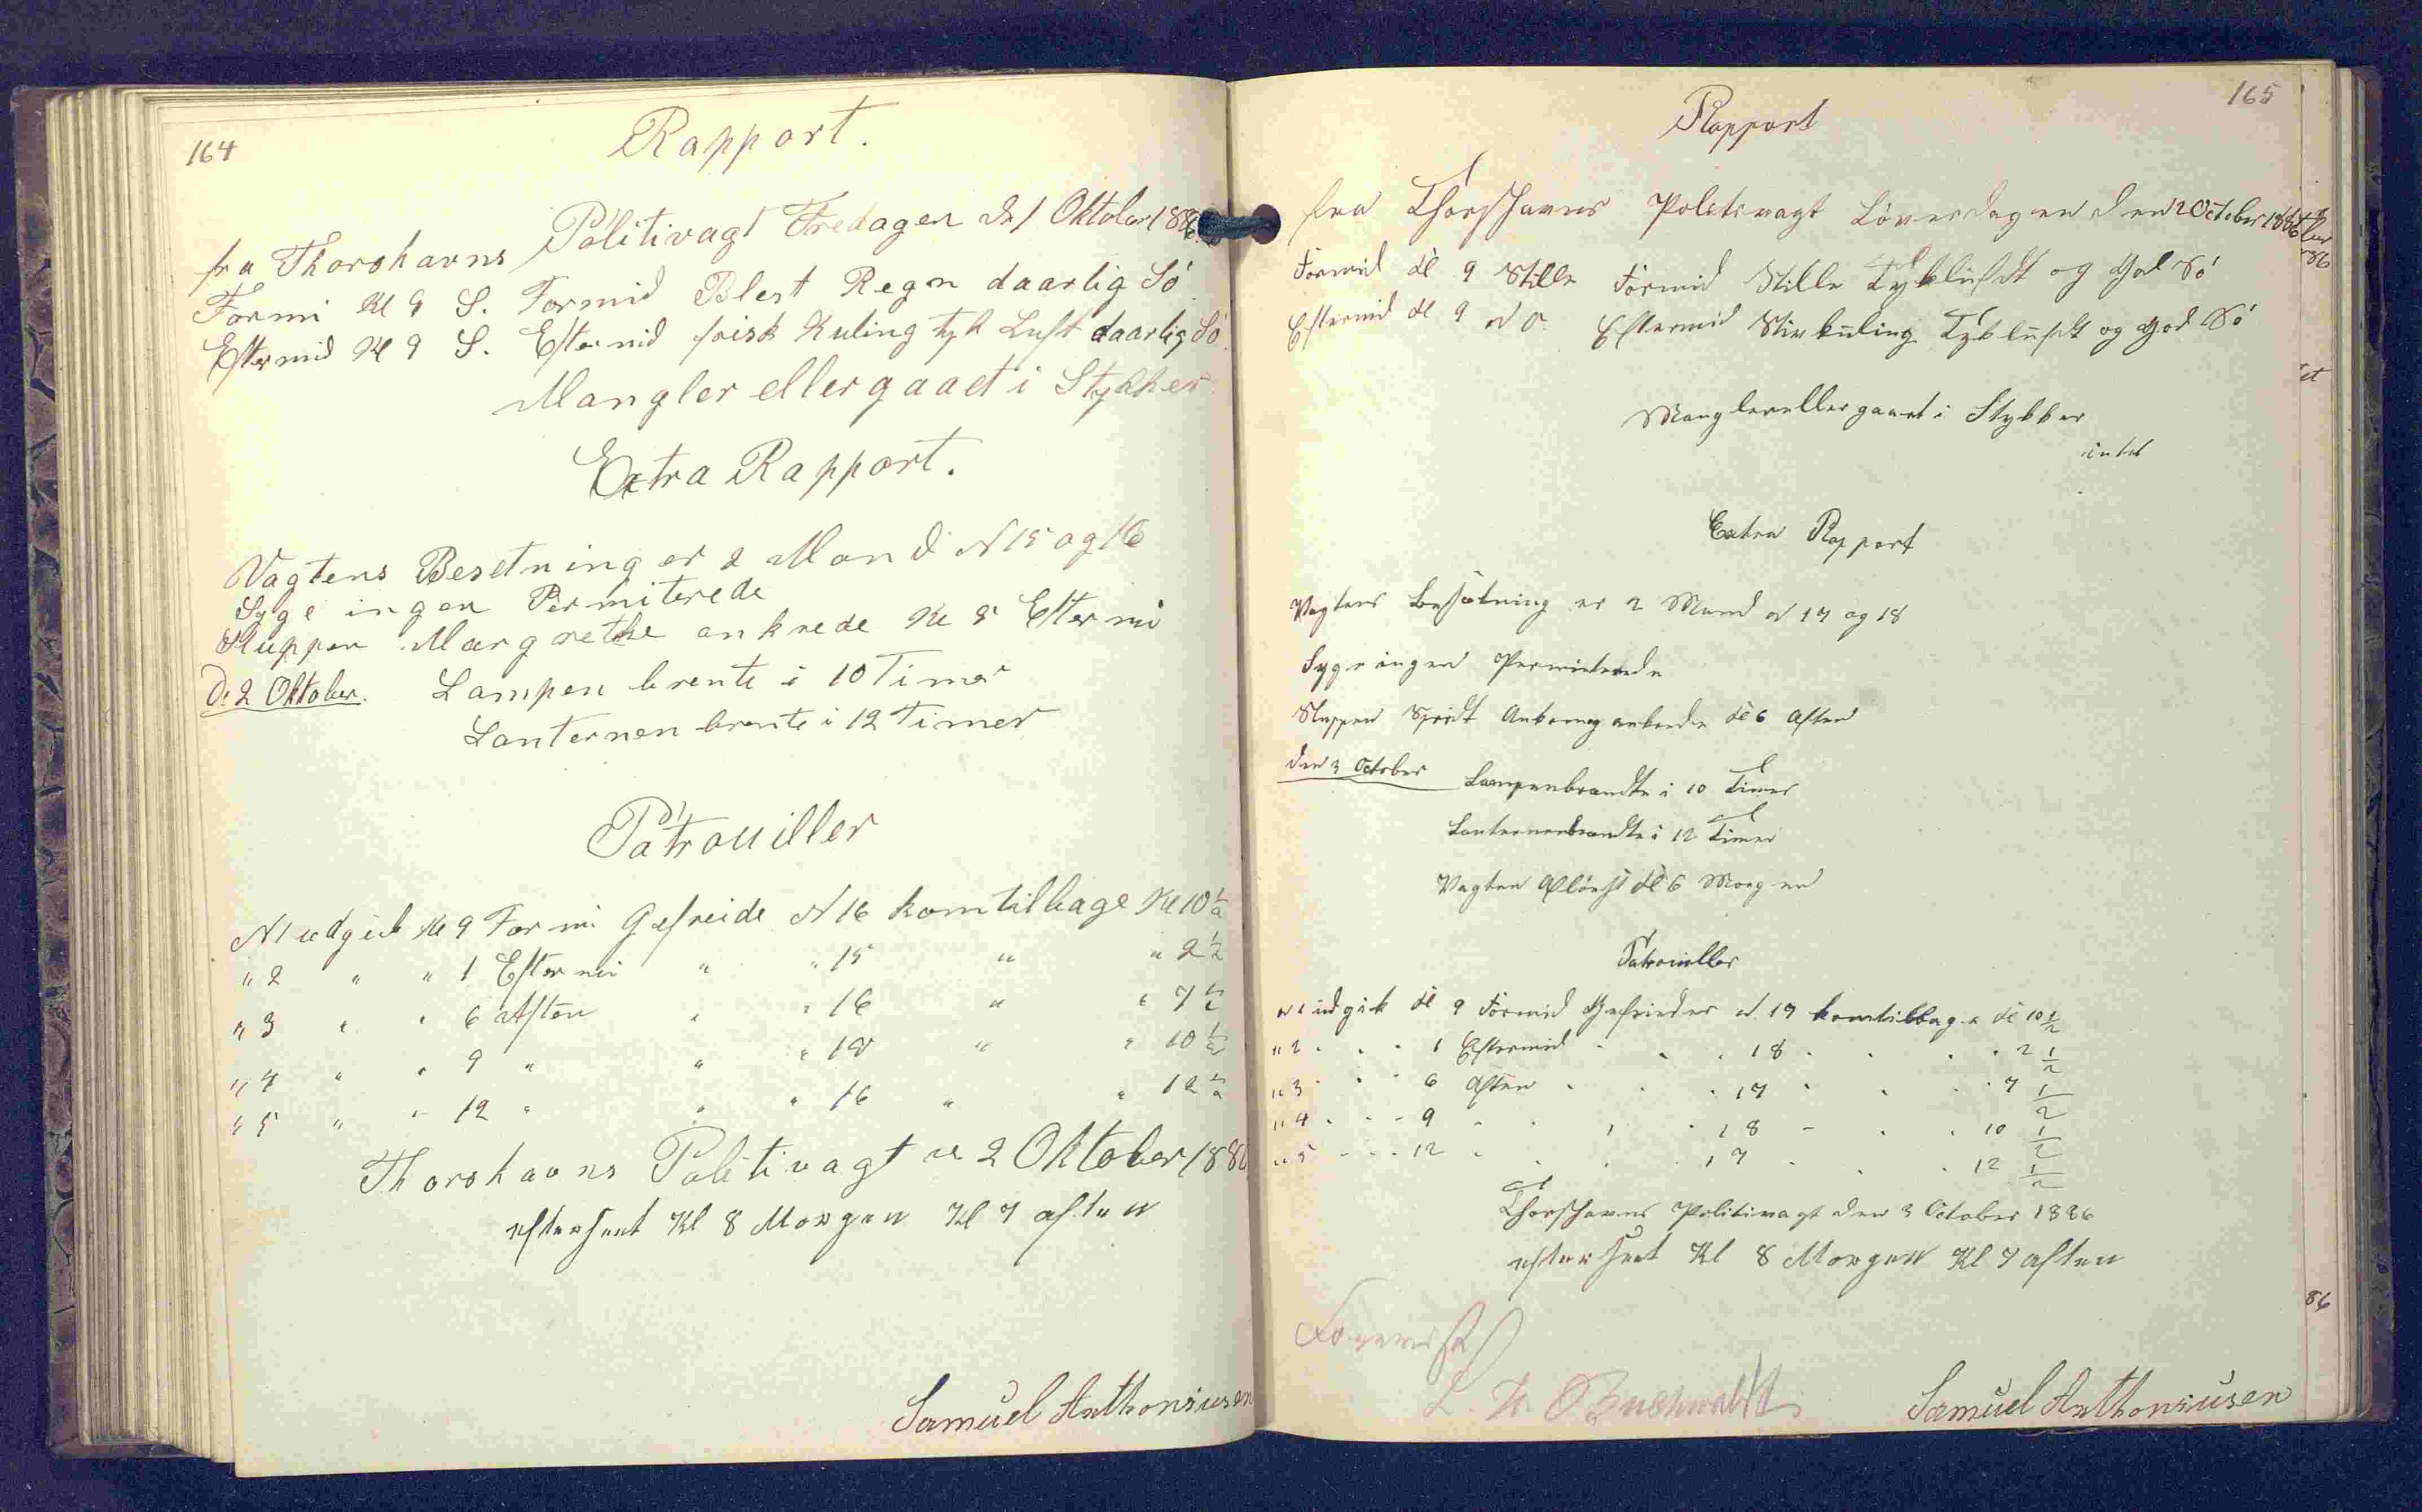 164
Rapport.
fra Thorshavns Politivagt Fredagen d. 1 Oktober 1886
Formi Kl 9 S. Formid Blest Regn daarlig Sö
Eftermid Kl 9 S. Eftermid frisk Kuling tyk Luft daarlig Sö
Mangler eller gaaet i Stykker
Extra Rapport.
Vagtens Besetning er 2 Mand N 15 og 16
Syge ingen Permiterede
Sluppen Margrethe ankrede Kl 8 Eftermi
D. 2 Oktober. Lampen brente i 10 Timer
Lanternen brente i 12 Timer
Patrouiller
N 1 udgik Kl 9 Formi Gefreide N 16 kom tilbage Kl 10 1/2
" 2 " " 1 Eftermi " " 15 " " 2 1/2
" 3 " " 6 Aften " " 16 " " 7 1/2
" 4 " " 9 " " " 15 " " 10 1/2
" 5 " " 12 " " " 16 " " 12 1/2
Thorshavns Politivagt d. 2 Oktober 1886
efterseet Kl 8 Morgen Kl 7 aften
Samuel Anthoniusen
165
Rapport
fra Thorshavns Politivagt Löverdagen den 2 October 1886
Formid Kl 9 Stille Formid Stille Tykluft og God Sö
Eftermid Kl 9 N O Eftermid Stivkuling Tykluft og God Sö
Mangler eller gaaet i Stykker
intet
Extra Rapport
Vagtens Besætning er 2 Mand N 17 og 18
Syge ingen Permiterede
Sluppen Ankrede Kl 6 Aften
den 3 October Lampen brændte i 10 Timer
Lanternen brændte i 12 Timer
Vagten Aflöst Kl 6 Morgen
Patrouiller
N 1 udgik Kl 9 Formid Gefreider N 17 kom tilbage Kl 10 1/2
" 2 . . . 1 Eftermid . . . 18 . . . . 2 1/2
" 3 . . . 6 Aften . . . 17 . . . . 7 1/2
" 4 . . . 9 . . . . 18 . . . 10 1/2
" 5 . . . 12 . . . . 17 . . . 12 1/2
Thorshavns Politivagt den 3 October 1886
efterseet Kl 8 Morgen Kl 7 aften
Forevist
Buchwaldt
Samuel Anthoniusen
86